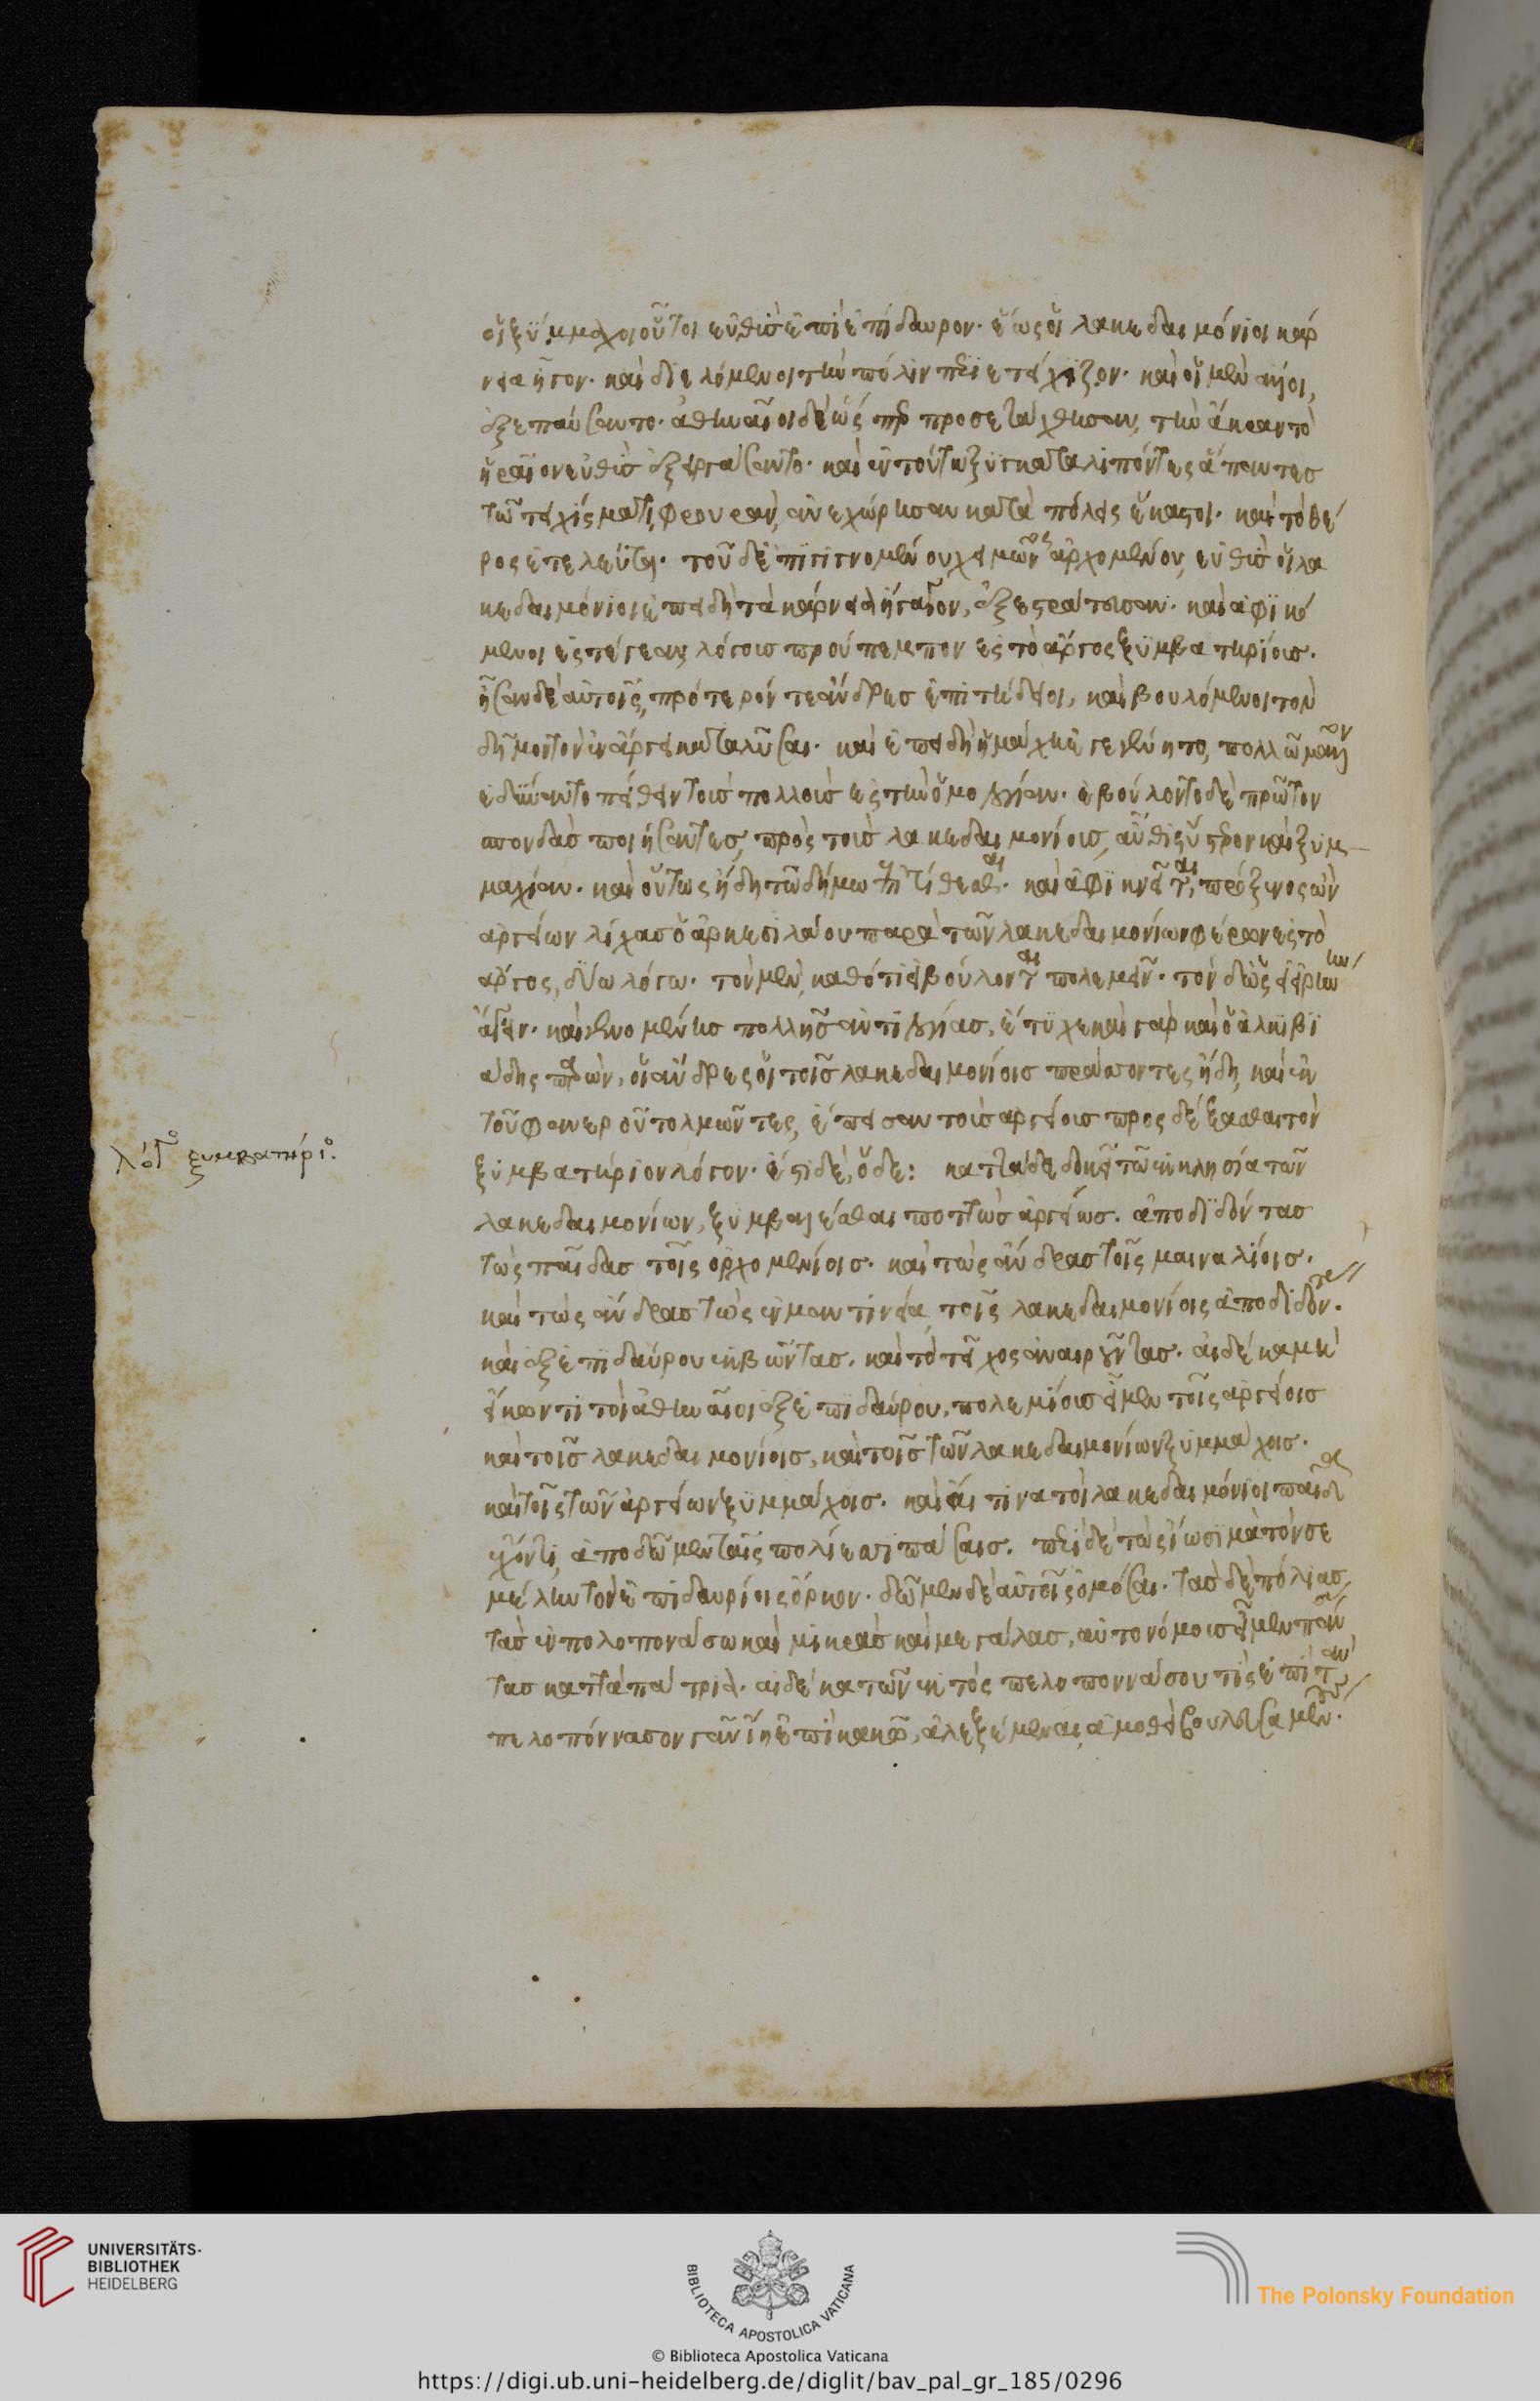 οἱ ξύμμαχοι οὗτοι εὐθὺς ἐπὶ ἐπίδαυρον. ἕως οἱ λακεδαιμόνιοι κάρ
νεια ἦγον. καὶ διελόμενοι τὴν πόλιν περιετείχιζον. καὶ οἱ μὲν ἄλλοι,
ἐξεπαύσαντο. ἀθηναῖοι δὲ ὥσπερ προσετάχθησαν, τὴν ἄκραν τὸ
ἥραιον εὐθὺς ἐξειργάσαντο. καὶ ἐν τούτῳ ξυγκαταλιπόντες ἅπαντες
τῷ τειχίσματι, φρουρὰν, ἀνεχώρησαν κατὰ πόλεις ἕκαστοι. καὶ τὸ θέ
ρος ἐτελεύτα. τοῦ δ' ἐπιγιγνομένου χειμῶνος ἀρχομένου, εὐθὺς οἱ λα
κεδαιμόνιοι ἐπειδὴ τὰ κάρνεια ἤγαγον, ἐξεστράτευσαν. καὶ ἀφικό
μενοι ἐς τέγεαν, λόγους προύπεμπον ἐς τὸ ἄργος ξυμβατηρίους.
ἦσαν δὲ αὐτοῖς, πρότερόν τε ἄνδρες ἐπιτήδειοι, καὶ βουλόμενοι τὸν
δῆμον τὸν ἐν ἄργει καταλῦσαι. καὶ ἐπειδὴ ἡ μάχη ἐγεγένητο, πολλῷ μᾶλλον
ἐδύναντο πείθειν τοὺς πολλοὺς ἐς τὴν ὁμολογίαν. ἐβούλοντο δὲ πρῶτον
σπονδὰς ποιήσαντες, πρὸς τοὺς λακεδαιμονίους, αὖθις ὕστερον καὶ ξυμ
μαχίαν. καὶ οὕτως ἤδη τῷ δήμῳ ἐπιτίθεσθαι. καὶ ἀφικνεῖται, πρόξενος ὢν
ἀργείων λίχας ὁ ἀρκεσιλάου παρὰ τῶν λακεδαιμονίων φέρων ἐς τὸ
ἄργος, δύω λόγω. τὸν μὲν, καθότι εἰ βούλονται πολεμεῖν. τὸν δὲ ὡς εἰ εἰρήνην
ἄγειν. καὶ γενομένης πολλῆς ἀντιλογίας, ἔτυχε καὶ γὰρ καὶ ὁ ἀλκιβι
άδης παρὼν, οἱ ἄνδρες οἱ τοῖς λακεδαιμονίοις πράσσοντες ἤδη, καὶ ἐκ
τοῦ φανεροῦ τολμῶντες, ἔπεισαν τοὺς ἀργείους προσδέξασθαι τὸν
ξυμβατήριον λόγον. ἔστι δὲ, ὅδε: καττάδε δοκεῖ τῷ ἐκκλησία τῶν
λακεδαιμονίων, ξυμβαλέσθαι ποττὼς ἀργείως. ἀποδιδόντας
τὼς παῖδας τοῖς ὀρχομενίοις. καὶ τὼς ἄνδρας τοῖς μαιναλίοις.
καὶ τὼς ἄνδρας τὼς ἐν μαντινεία, τοῖς λακεδαιμονίοις ἀποδιδόντας.
καὶ ἐξ ἐπιδαύρου ἐκβῶντας. καὶ τὸ τεῖχος ἀναιροῦντας. αἰ δέ κα μὴ
εἴκωντι τοὶ ἀθηναῖοι ἐξ ἐπιδαύρου, πολεμίους εἶμεν τοῖς ἀργείοις
καὶ τοῖς λακεδαιμονίοις, καὶ τοῖς τῶν λακεδαιμονίων ξυμμάχοις.
καὶ τοῖς τῶν ἀργείων ξυμμάχοις. καὶ αἴ τινα τοὶ λακεδαιμόνιοι παῖδα
ἔχοντι, ἀποδῶμεν ταῖς πολίεσι πάσαις. περὶ δὲ τὼς ἰὼ σιμάτονσε
μέλην τὸν ἐπιδαυρίοις ὅρκον. δῶμεν δὲ αὐτοῖς ὀμόσαι. τὰς δὲ πόλιας
τὰς ἐν πολοποννάσω καὶ μικρὰς καὶ μεγάλας, αὐτονόμους εἶμεν πάσας
τας καττὰ πάτρια. αἰ δέ κα τῶν ἐκτὸς πελοποννάσου τὶς ἐπὶ τὰν
πελοπόννασον γᾶν ἴῃ ἐπὶ κακῷ, ἀλεξέμεναι ἁμοθεὶ βουλευσαμένους.
λόγος ξυμβατήριος
UNIVERSITÄTS-
BIBLIOTHEK
HEIDELBERG
BIBLIOTECA APOSTOLICA VATICANA
The Polonsky Foundation
© Biblioteca Apostolica Vaticana
https://digi.ub.uni-heidelberg.de/diglit/bav_pal_gr_185/0296